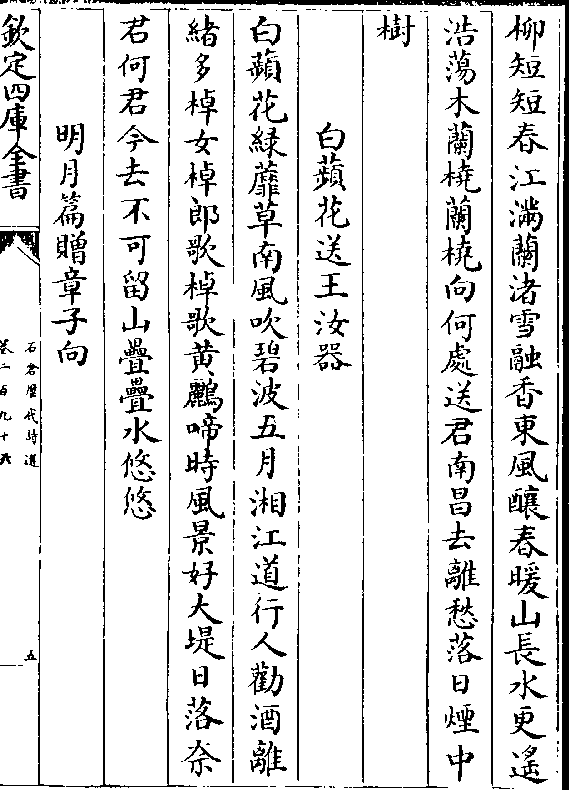 柳短短春江滿蘭渚雪融香東風釀春暖山長水更遙
浩蕩木蘭橈蘭橈向何處送君南昌去離愁落日煙中
樹
白蘋花送王汝器
白蘋花綠蘼草南風吹碧波五月湘江道行人勸酒離
緒多棹女棹郎歌棹歌黄鸝啼時風景好大堤日落奈
君何君今去不可留山疊疊水悠悠
明月篇贈章子向
欽定四庫全書
石倉歷代詩選
卷二百九十六
五